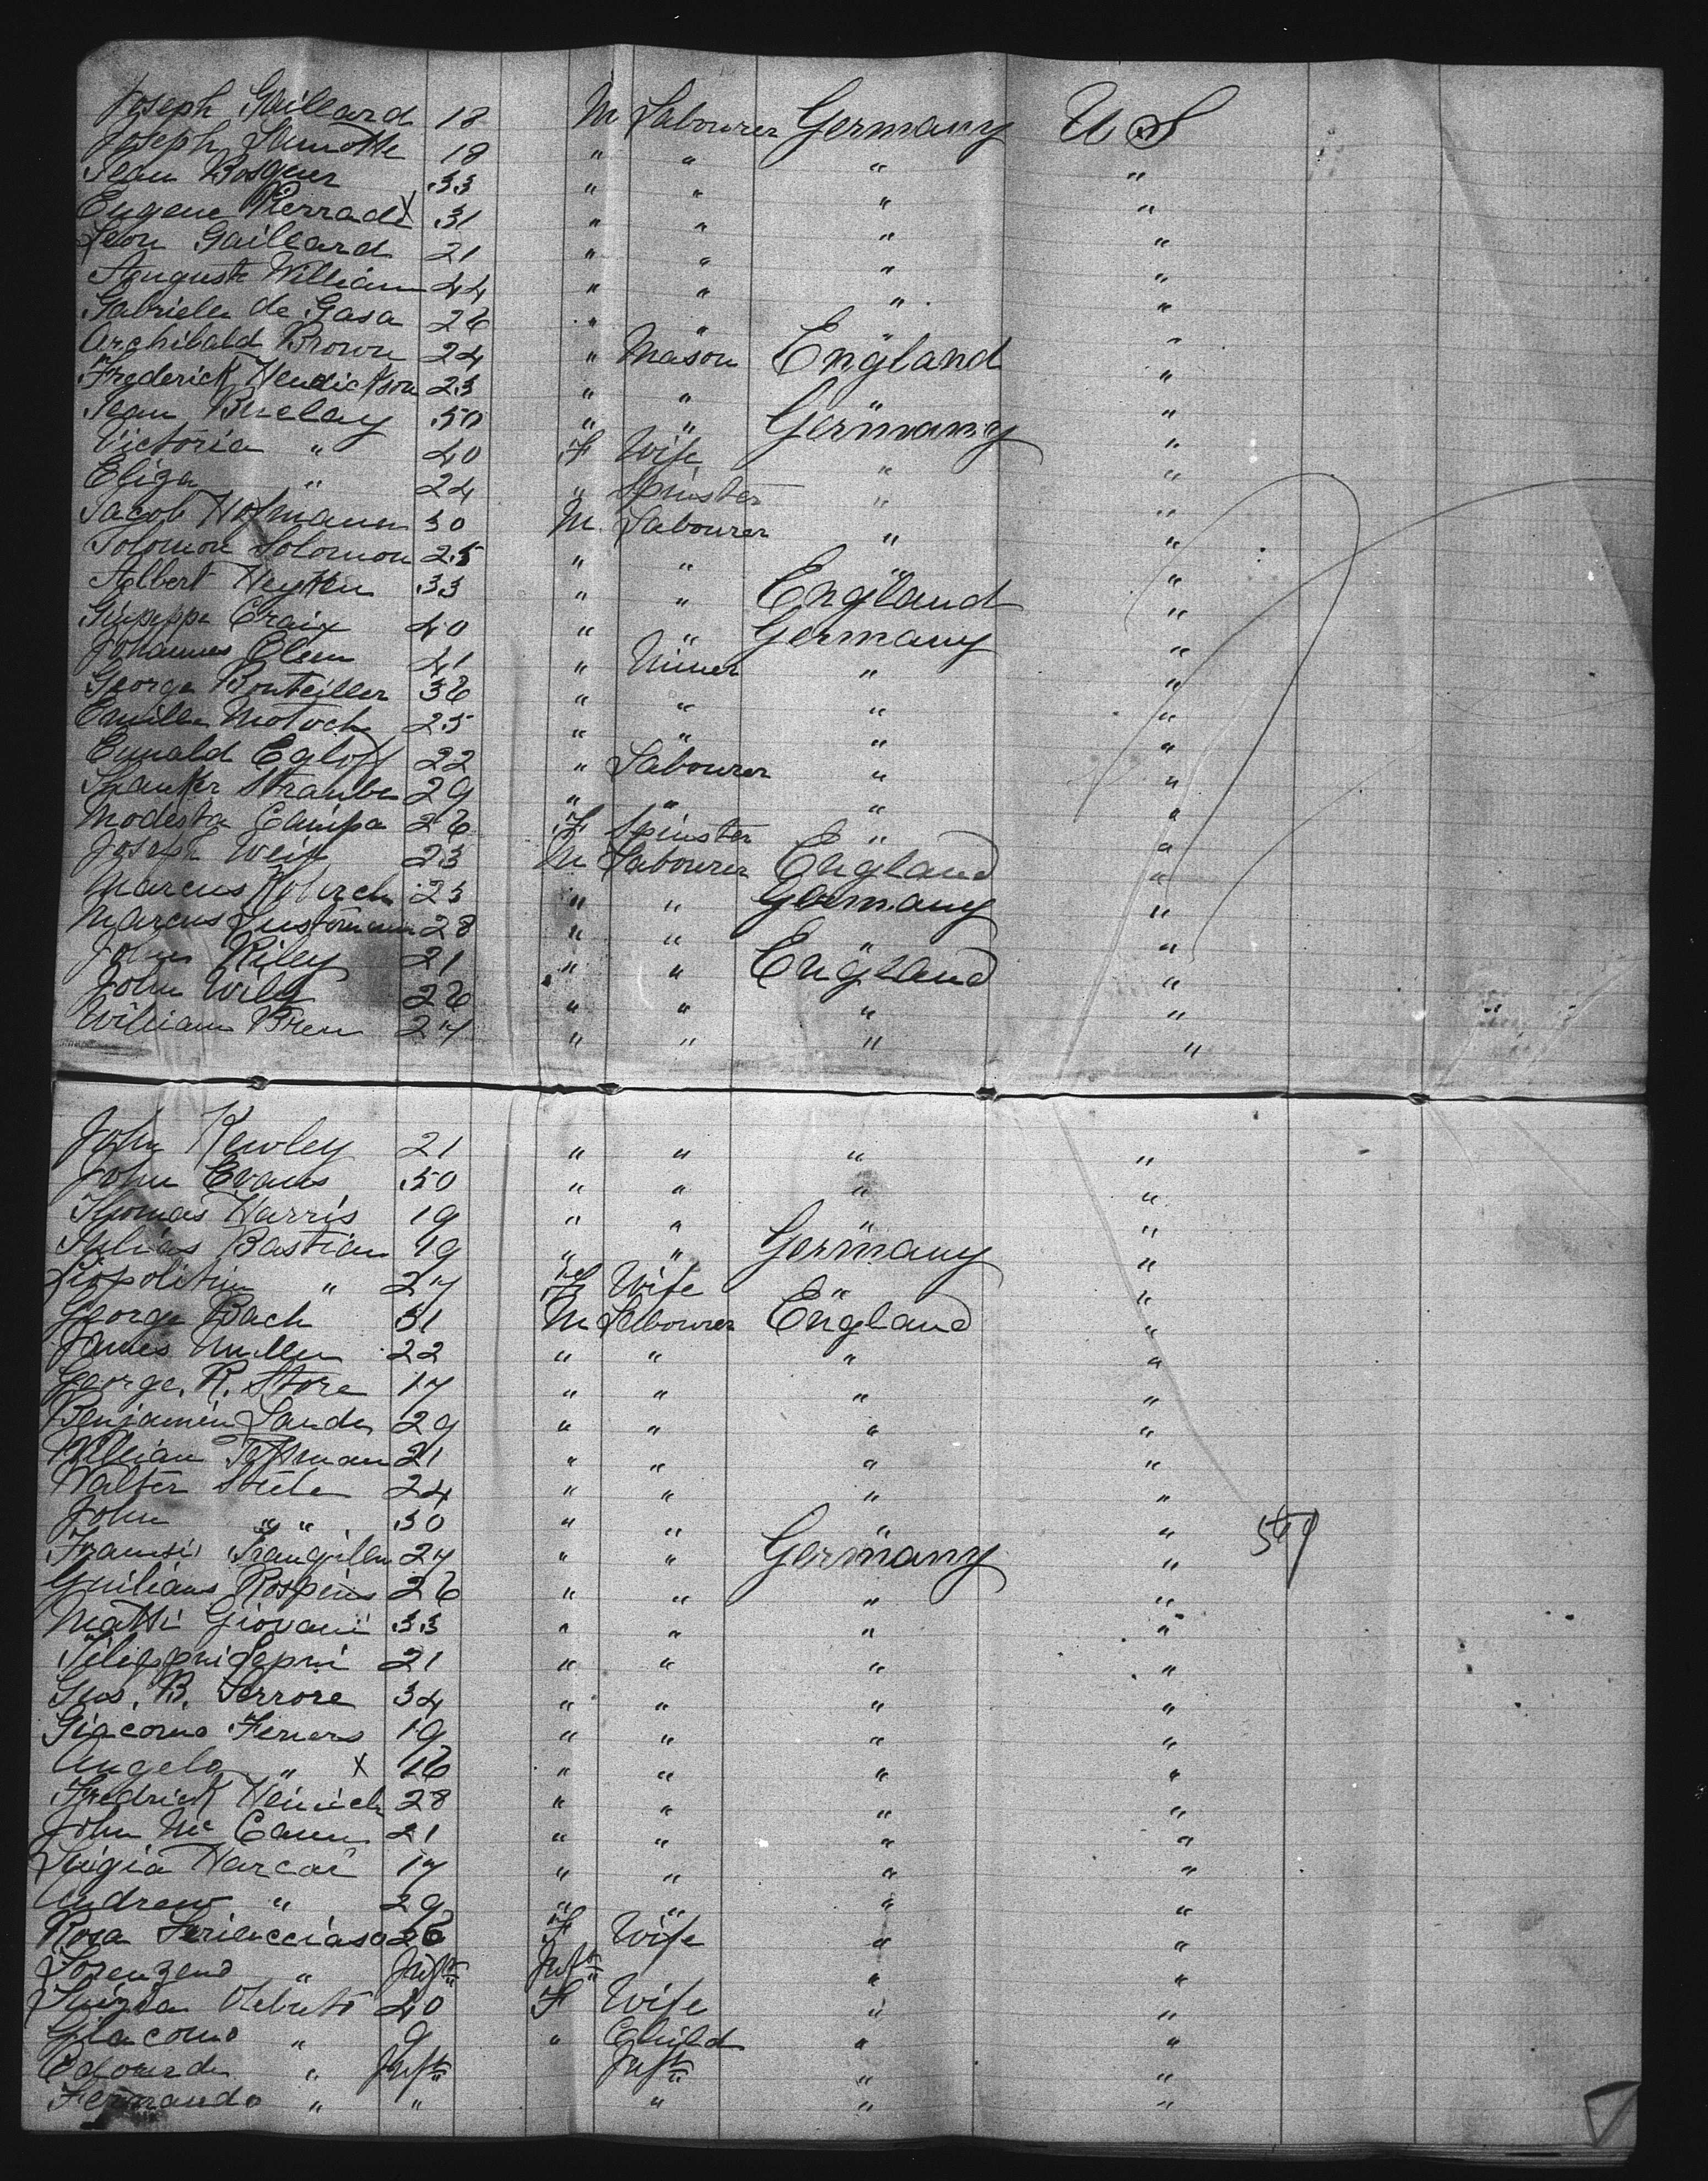 Joseph Gaillard 18 M Labourer Germany U S
Joseph 18 " " " "
Jean Bosquer 33 " " " "
Eugene Pierrad X 31 " " " "
Leon Gaillard 21 " " " "
Auguste William 44 " " " "
Gabriele de Gasa 26 " " "
Archibald Brown 24 " Mason England "
Frederick Hendickson 23 " " " "
Jean Buclay 50 " " Germany "
Victoria " 40 F Wife " "
Eliza " 24 " Spinster " "
Jacob Hofmann 30 M Labourer " "
Solomon Solomon 25 " " " "
Albert Heyken 33 " " England "
Guiseppe Craix 40 " " Germany "
Johannes Clem 41 " Miner " "
George Bouteiller 36 " " " "
Emille Motoch 25 " " " "
Ewald Egloff 22 " Labourer " "
Straube 29 " " " "
Modesta 26 F Spinster " "
Joseph Weiss 23 M Labourer England "
Marcus 23 " " Germany "
Marcus Lustmann 28 " " " "
John Riley 21 " " England "
John Wild 26 " " " "
William Bren 27 " " " "
John Kewley 21 " " " "
John Evans 50 " " " "
Thomas Harris 19 " " " "
Julias Bastian 49 " " Germany "
Liopolitin " 27 F Wife " "
George Bach 31 M Labourer England "
James Mullen 22 " " " "
George. R. Store 17 " " " "
Benjamin Lander 29 " " " "
William Tettman 21 " " " "
Walter Stiele 24 " " " "
John " " 30 " " " "
Fransis 27 " " Germany "
Guilians Rospins 26 " " " "
Matti Giovani 33 " " " "
21 " " " "
Gus. B. Serrore 34 " " " "
Giacomo Feners 19 " " " "
Angelo " X 16 " " " "
Fredrick Heinich 28 " " " "
John Mc Cann 21 " " " "
Luigia Harcai 17 " " " "
Andrew " 29 " " " "
Rosa 26 F Wife " "
Lorenzend " Inft Inft " "
Luizia 40 F Wife " "
Giacomo " 9 " Child " "
Edouarde " Inft Inft " "
Fernando " " " " "